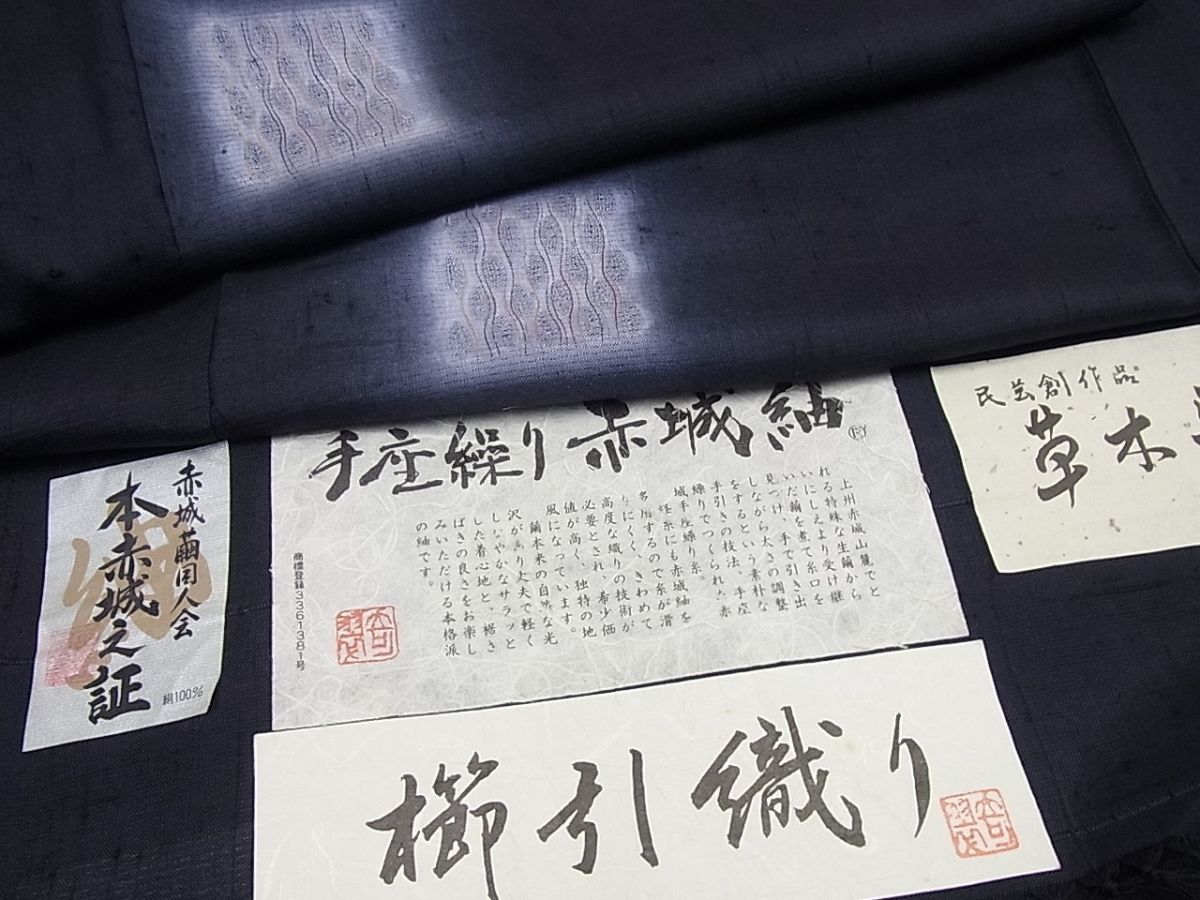 赤城繭同人会
本赤城之証
絹100%
手座繰り赤城紬
上州赤城山麓でと
れる特殊な生繭から
いにしえより受け継
いだ繭を煮て糸口を
見つけ、手で引き出
しながら太さの調整
をするという素朴な
手引きの技法、手座
繰りでつくられた赤
城手座繰り糸。
経糸にも赤城紬を
多用するので糸が滑
りにくく、きわめて
高度な織りの技術が
必要とされ、希少価
値が高く、独特の地
風になっています。
繭本来の自然な光
沢があり丈夫で軽く
しなやかなサラッと
した着心地と、裾さ
ばきの良さをお楽し
みいただける本格派
の紬です。
商標登録3361381号
民芸創作品
草木
櫛引織り